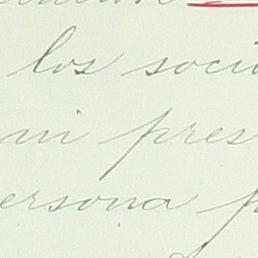 los soci
mi pres
ersona p